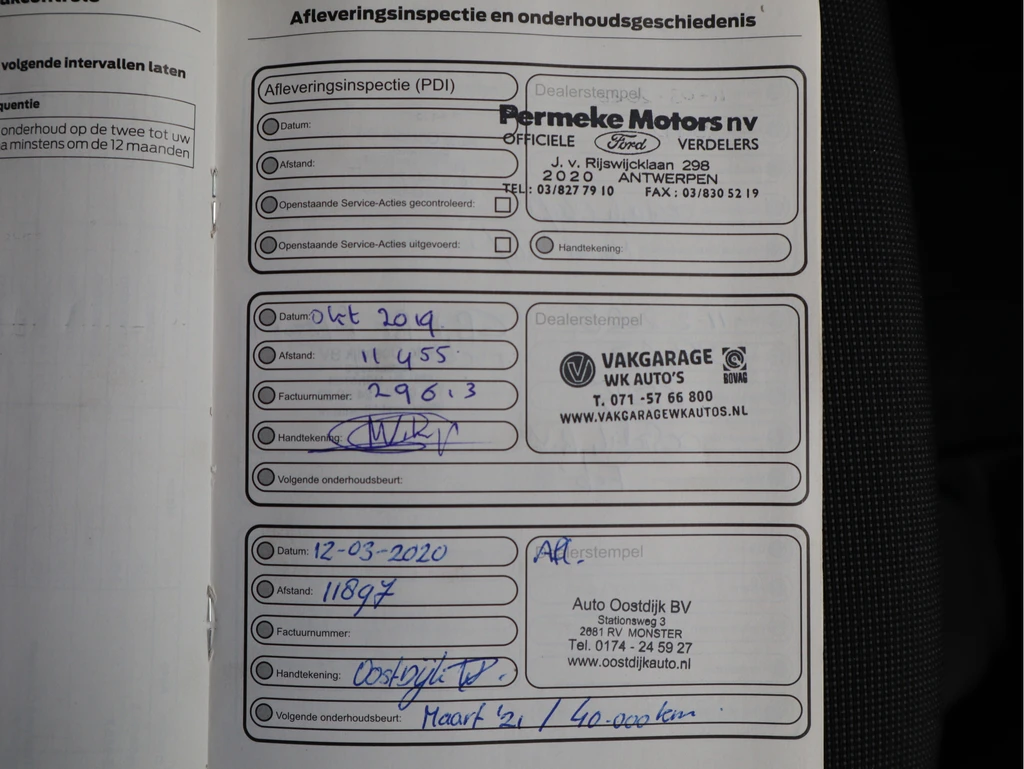 volgende intervallen laten
quentie
onderhoud op de twee tot uw
a minstens om de 12 maanden
Afleveringsinspectie en onderhoudsgeschiedenis
Afleveringsinspectie (PDI)
Datum:
Afstand:
Openstaande Service-Acties gecontroleerd:
Openstaande Service-Acties uitgevoerd:
Dealerstempel
Permeke Motors nv
OFFICIELE Ford VERDELERS
J. v. Rijswijcklaan 298
2020 ANTWERPEN
TEL: 03/827 79 10 FAX: 03/830 52 19
Handtekening:
Datum: Okt 2019.
Afstand: 11 455
Factuurnummer: 296.3
Handtekening:
Volgende onderhoudsbeurt:
Dealerstempel
VAKGARAGE
WK AUTO'S
BOVAG
T. 071 -57 66 800
WWW.VAKGARAGEWKAUTOS.NL
Datum: 12-03-2020
Afstand: 11897
Factuurnummer:
Handtekening: Oostdijk
Volgende onderhoudsbeurt: Maart '21 / 40.000km
Dealerstempel
Afl.
Auto Oostdijk BV
Stationsweg 3
2681 RV MONSTER
Tel. 0174 - 24 59 27
www.oostdijkauto.nl